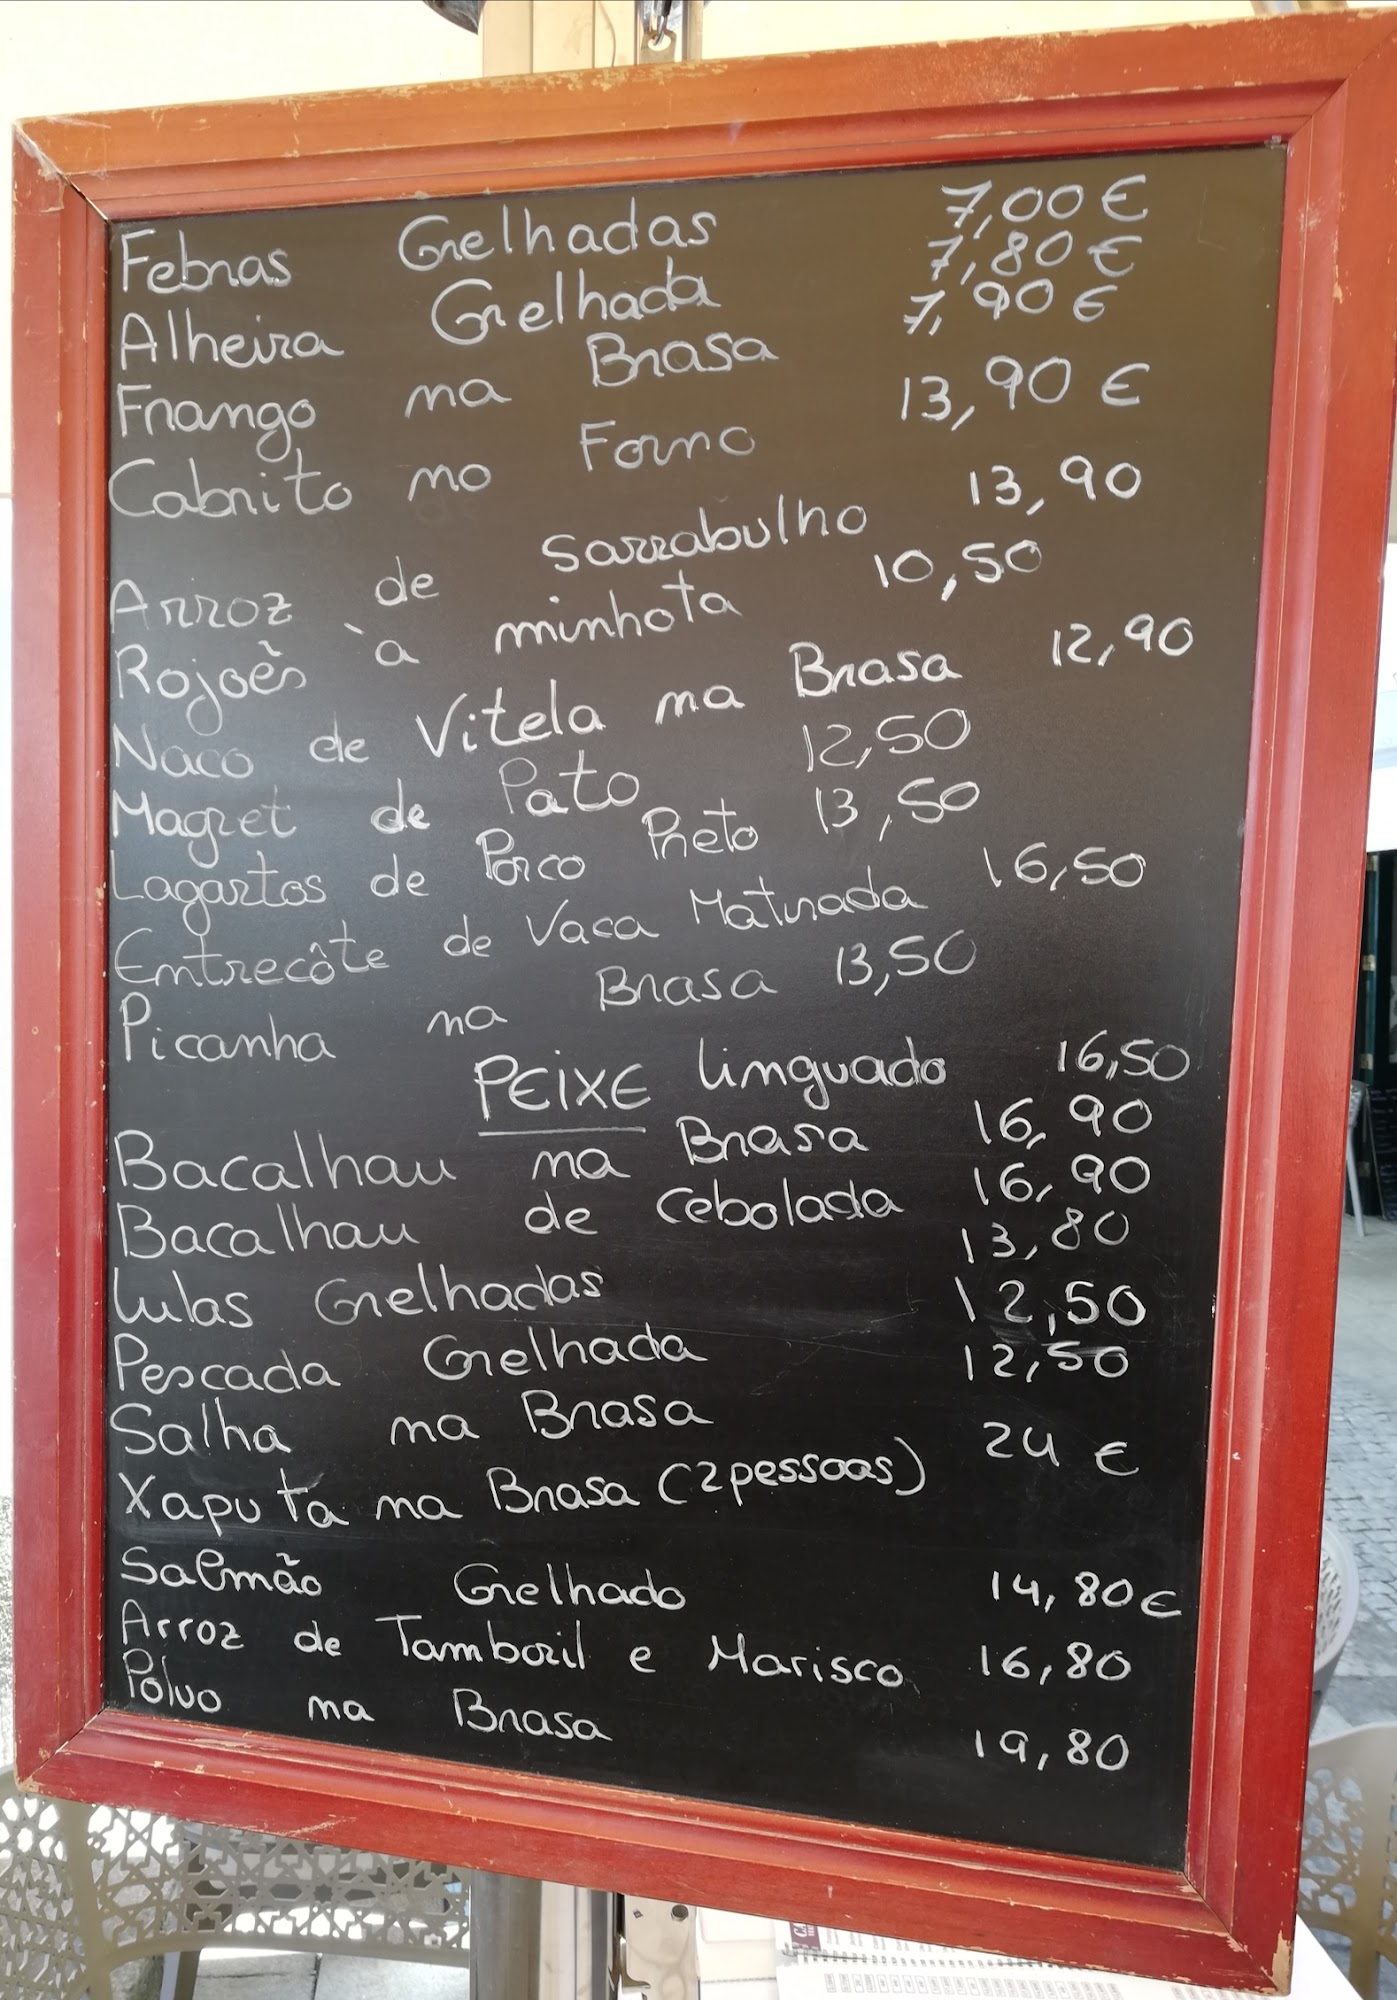 Febras Grelhadas 7,00 €
Alheira Grelhada 7,80 €
Frango na Brasa 7,90 €
Cabrito no Forno 13,90 €
Arroz de Sarrabulho 13,90
Rojoẽs à minhota 10,50
Naco de Vitela na Brasa 12,90
Magret de Pato 12,50
Lagartos de Porco Preto 13,50
Entrecôte de Vaca Maturada 16,50
Picanha na Brasa 13,50
PEIXE linguado 16,50
Bacalhau na Brasa 16,90
Bacalhau de Cebolada 16,90
Lulas Grelhadas 13,80
Pescada Grelhada 12,50
Salha na Brasa 12,50
Xaputa na Brasa (2 pessoas) 24 €
Salmão Grelhado 14,80 €
Arroz de Tamboril e Marisco 16,80
Pólvo na Brasa 19,80